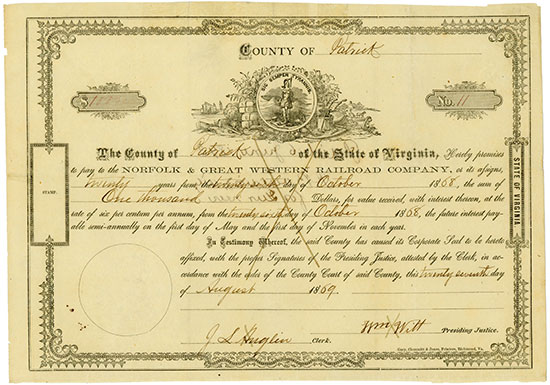 COUNTY OF Patrick
SIC SEMPER TYRANNIS
$
No. 11
The County of Patrick of the State of Virginia, Hereby promises
to pay to the NORFOLK & GREAT WESTERN RAILROAD COMPANY, or its assigns,
twenty years from the twenty sixth day of October 1868, the sum of
One thousand Dollars, for value received, with interest thereon, at the
rate of six per centum per annum, from the twenty sixth day of October 1868, the future interest pay-
able semi-annually on the first day of May and the first day of November in each year.
In Testimony Whereof, the said County has caused its Corporate Seal to be hereto
affixed, with the proper Signatures of the Presiding Justice, attested by the Clerk, in ac-
cordance with the order of the County Court of said County, this twenty seventh day
of August 1869.
STAMP.
STATE OF VIRGINIA
Wm Witt Presiding Justice.
J L Clerk.